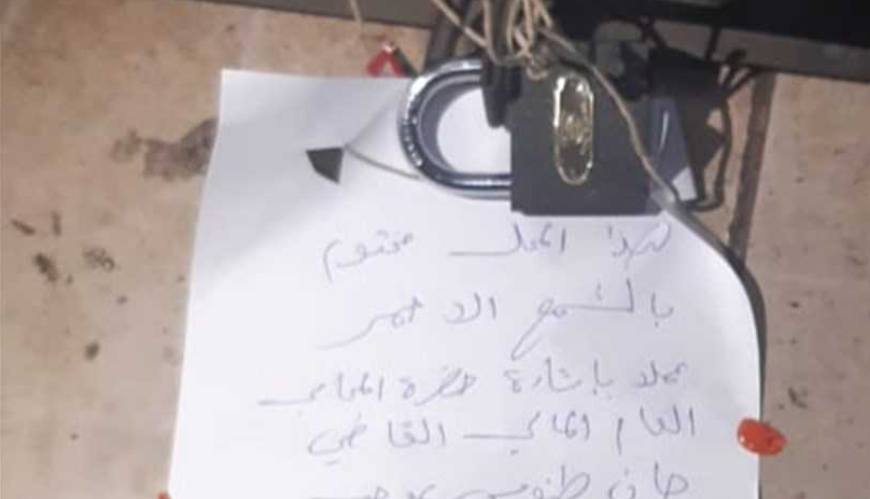 هذا المحل مختوم
بالشمع الاحمر
عملا بإشارة حضرة المحامي
العام المالي القاضي
طنوس